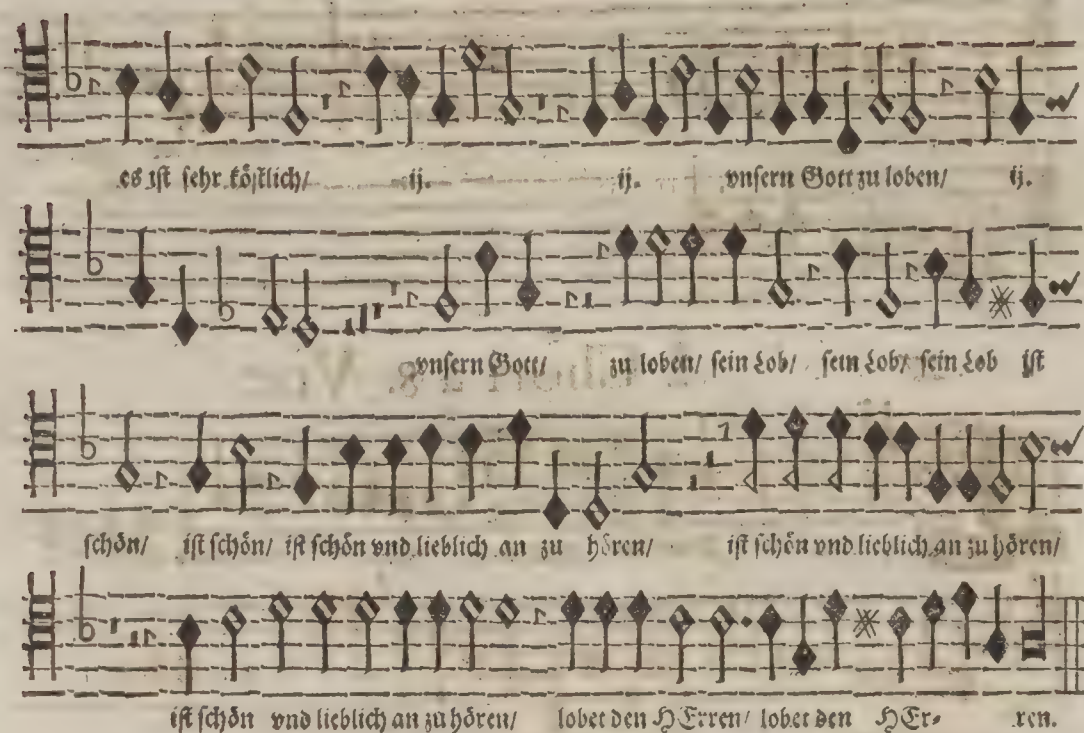 es ist sehr köstlich/ ij. ij. vnsern Gott zu loben/ ij.
vnsern Gott/ zu loben/ sein Lob/ sein Lob/ sein Lob ist
schön/ ist schön/ ist schön vnd lieblich an zu hören/ ist schön vnd lieblich an zu hören/
ist schön vnd lieblich an zu hören/ lobet den HErren/ lobet den HEr- ren.